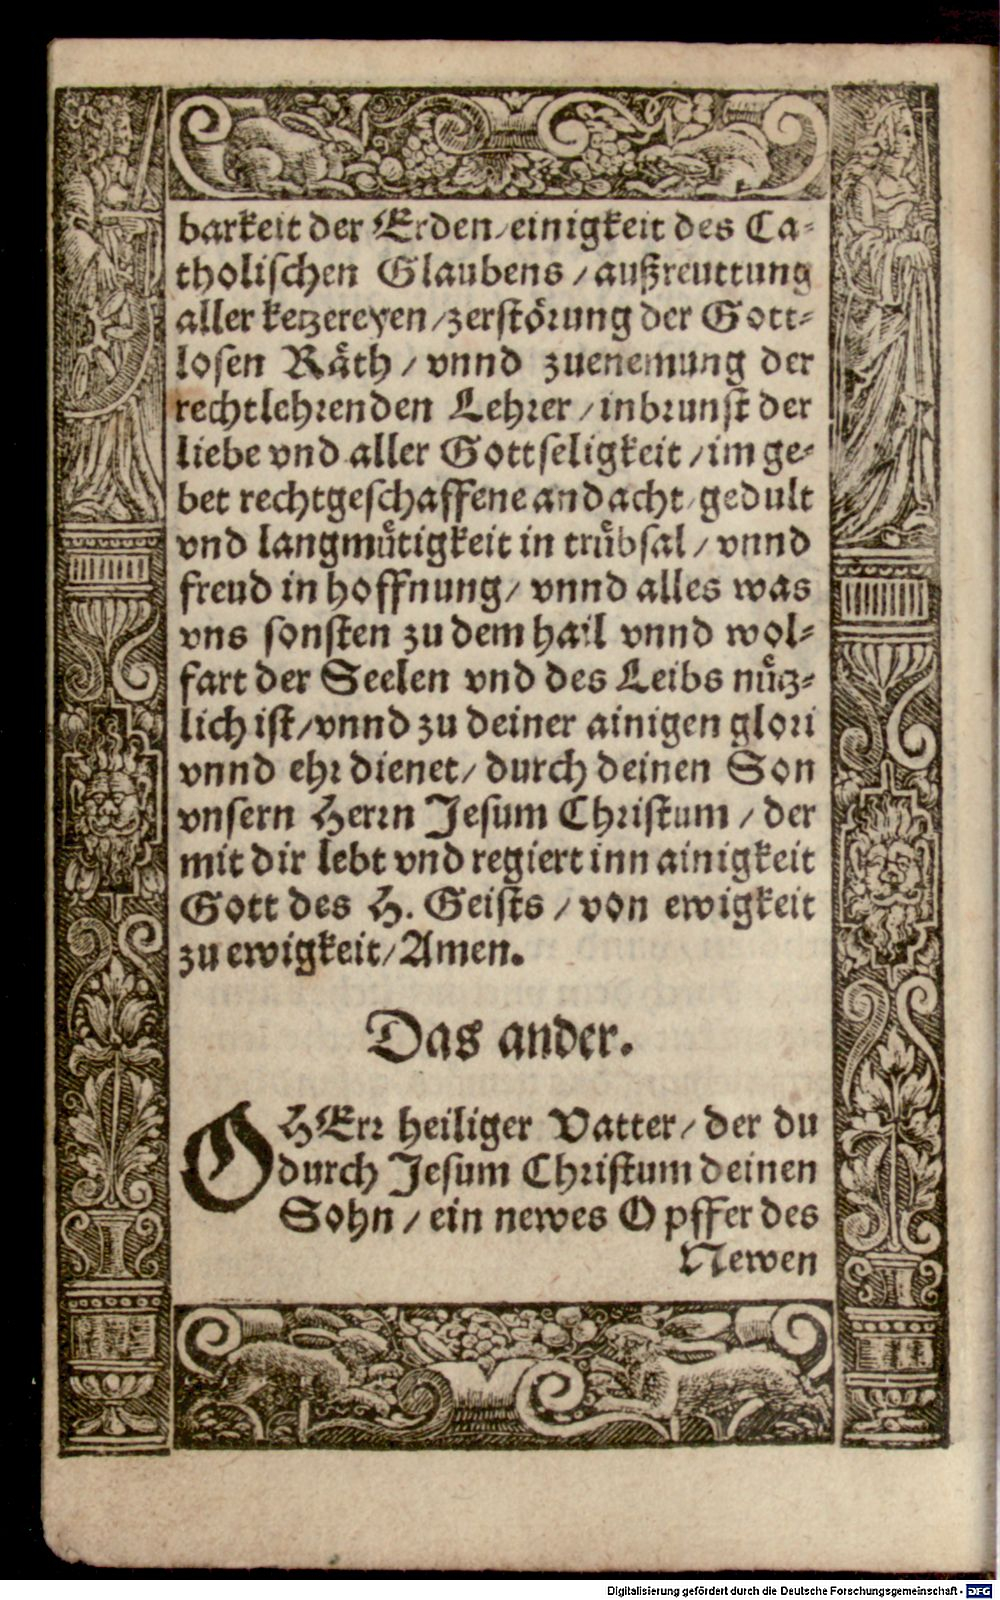 barkeit der Erden/einigkeit des Ca-
tholischen Glaubens / außreuttung
aller ketzereyen/zerstörung der Gott-
losen Räth / vnnd zuenemung der
rechtlehrenden Lehrer / inbrunst der
liebe vnd aller Gottseligkeit / im ge-
bet rechtgeschaffene andacht/gedult
vnd langmütigkeit in trübsal / vnnd
freud in hoffnung/ vnnd alles was
vns sonsten zu dem hail vnnd wol-
fart der Seelen vnd des Leibs nütz-
lich ist/vnnd zu deiner ainigen glori
vnnd ehr dienet/ durch deinen Son
vnsern Herrn Jesum Christum / der
mit dir lebt vnd regiert inn ainigkeit
Gott des H. Geists / von ewigkeit
zu ewigkeit/Amen.
Das ander.
O HErr heiliger Vatter/ der du
durch Jesum Christum deinen
Sohn / ein newes Opffer des
Newen
Digitalisierung gefördert durch die Deutsche Forschungsgemeinschaft - DFG